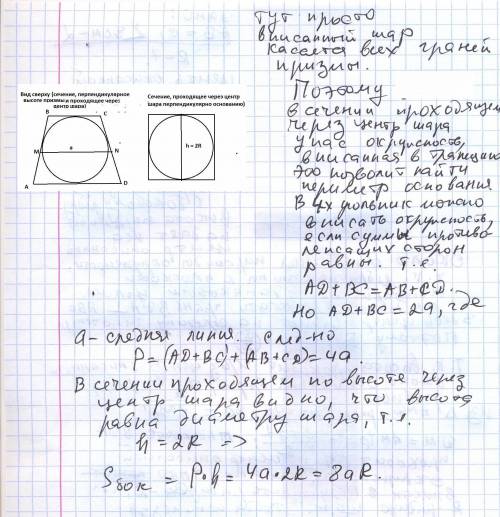 Тут просто
вписанный шар
касается всех граней
призмы.
Поэтому
в сечении проходящем
через центр шара
у нас окружность,
вписанная в трапецию
Это позволит найти
периметр основания
В 4х угольник можно
вписать окружность,
если суммы противо
лежащих сторон
равны. т.е.
AD+BC=AB+CD.
Но AD+BC=2a, где
Вид сверху (сечение, перпендикулярное
высоте призмы и проходящее через
центр шара)
B C
a
M N
A D
Сечение, проходящее через центр
шара перпендикулярно основанию)
h = 2R
a - средняя линия. След-но
P=(AD+BC)+(AB+CD)=4a.
В сечении проходящем по высоте через
центр шара видно, что высота
равна диаметру шара, т.е.
h=2R =>
Sбок = P·h=4a·2R=8aR.